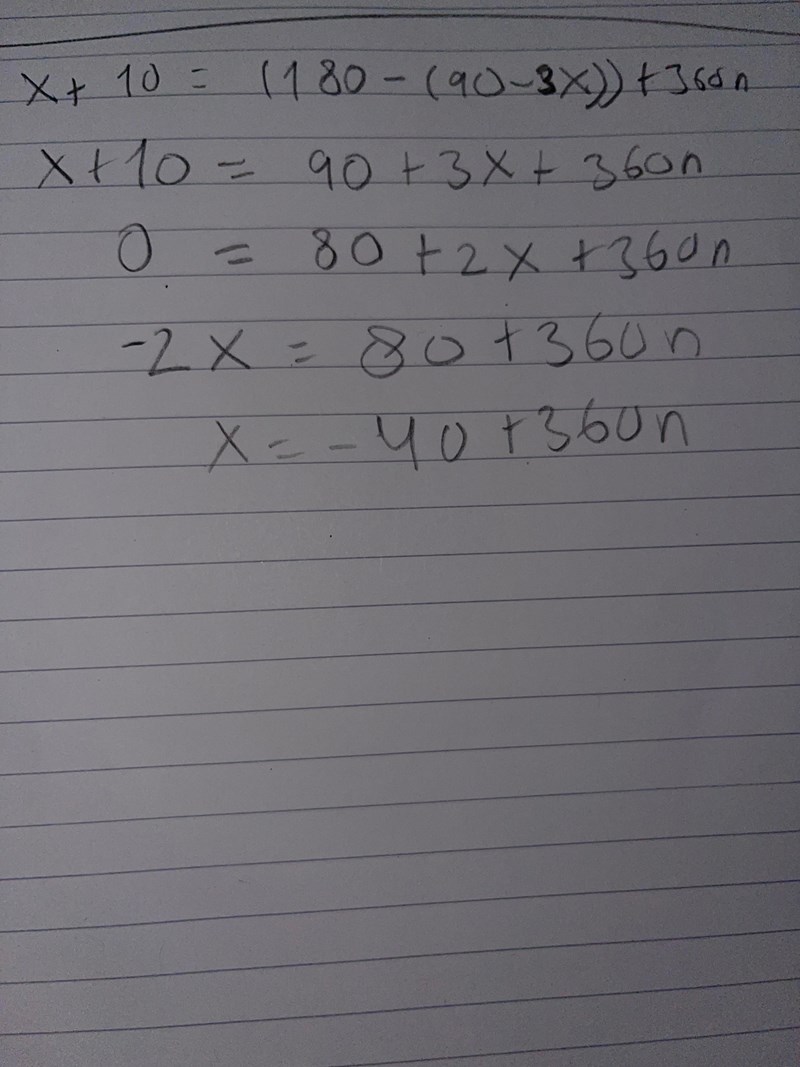 x + 10 = (180 - (90 - 3x)) + 360n
x + 10 = 90 + 3x + 360n
0 = 80 + 2x + 360n
-2x = 80 + 360n
x = -40 + 360n